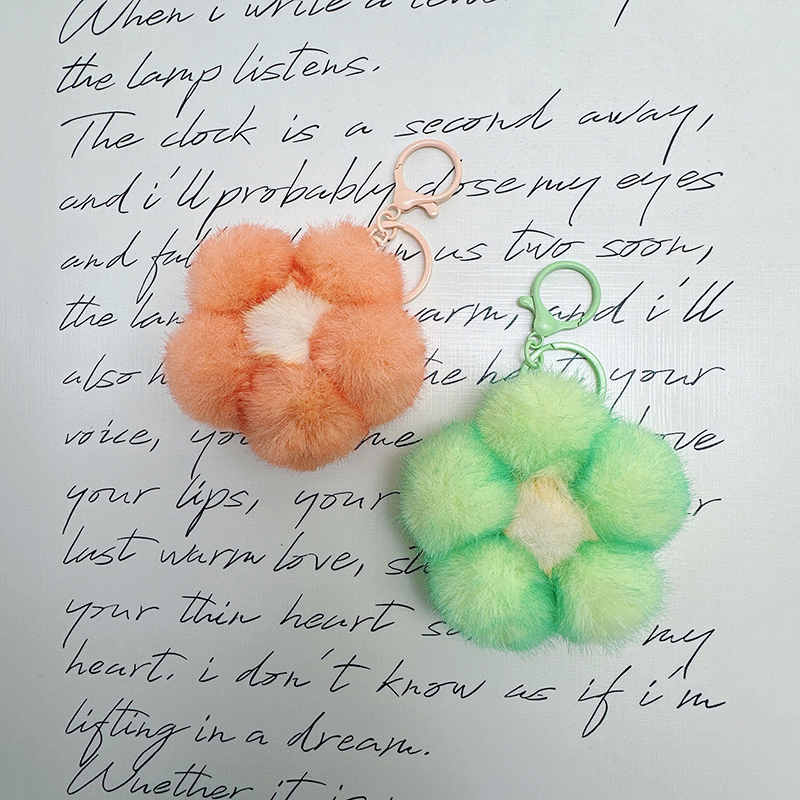 When i write a
the lamp listens.
The clock is a second away,
and i'll probably close my eyes
and us two soon,
the warm, and i'll
also your
voice,
your lips, your
last warm love,
your thin heart my
heart. i don't know as if i'm
lifting in a dream.
Whether it is